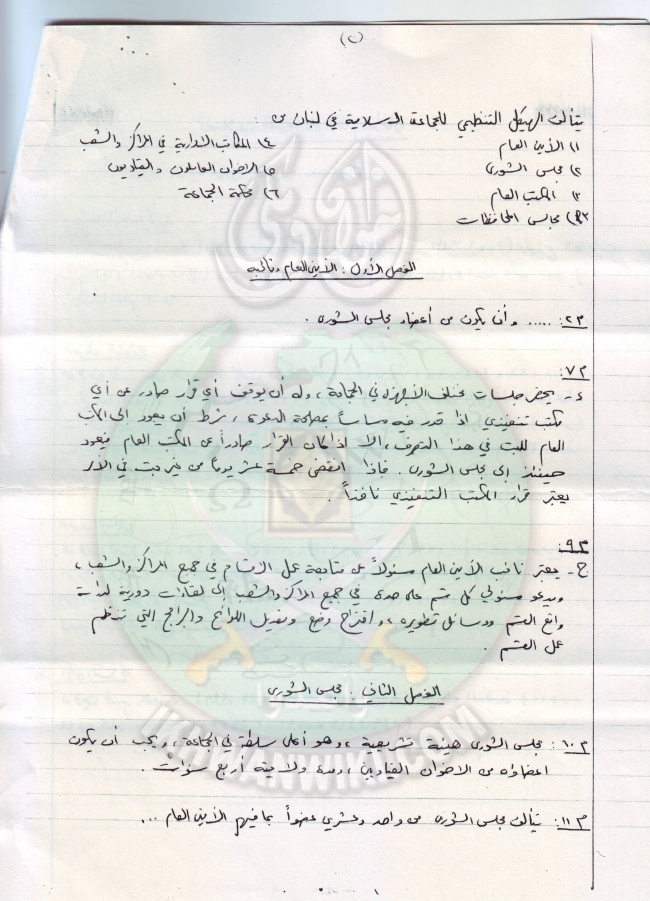 (٢)
يتألف الهيكل التنظيمي للجماعة الاسلامية في لبنان من :
١) الأمين العام
٤) المكاتب الادارية في المراكز والشعب
٢) مجلس الشورى
٥) الاخوان العاملون والقياديون
٣) المكتب العام
٦) محكمة الجماعة
٣م) مجالس المحافظات
الفصل الأول : الأمين العام ونائبه
م٢ : ..... وأن يكون من أعضاء مجلس الشورى .
م٧ :
٤- يحضر جلسات مختلف الأجهزة في الجماعة ، وله أن يوقف أي قرار صادر عن أي
مكتب تنفيذي اذا قدر فيه مساساً بمصلحة الدعوة ، شرط أن يعود إلى المكتب
العام للبت في هذا التصرف ، الا اذا كان القرار صادراً عن المكتب العام فيعود
حينئذ إلى مجلس الشورى . فاذا انقضى خمسة عشر يوماً من غير بت في الأمر
يعتبر قرار المكتب التنفيذي نافذاً .
م٩ :
ح- يعتبر نائب الأمين العام مسئولاً عن متابعة عمل الاقسام في جميع المراكز والشعب ،
ويدعو مسئولي كل قسم على حدة في جميع المراكز والشعب إلى لقاءات دورية لدراسة
واقع القسم ووسائل تطويره ، واقتراح وضع وتعديل اللوائح والبرامج التي تنظم
عمل القسم .
الفصل الثاني : مجلس الشورى
م١٠ : مجلس الشورى هيئة تشريعية ، وهو أعلى سلطة في الجماعة ، ويجب أن يكون
اعضاؤه من الاخوان القياديين ، ومدة ولايته أربع سنوات .
م١١ : يتألف مجلس الشورى من واحد وعشرين عضواً بما فيهم الأمين العام ...
IKHWANWIKI.COM